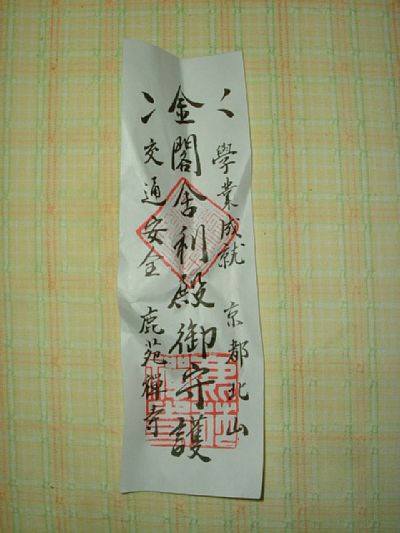 學業成就 京都北山
金閣舎利殿御守護
交通安全 鹿苑禅寺